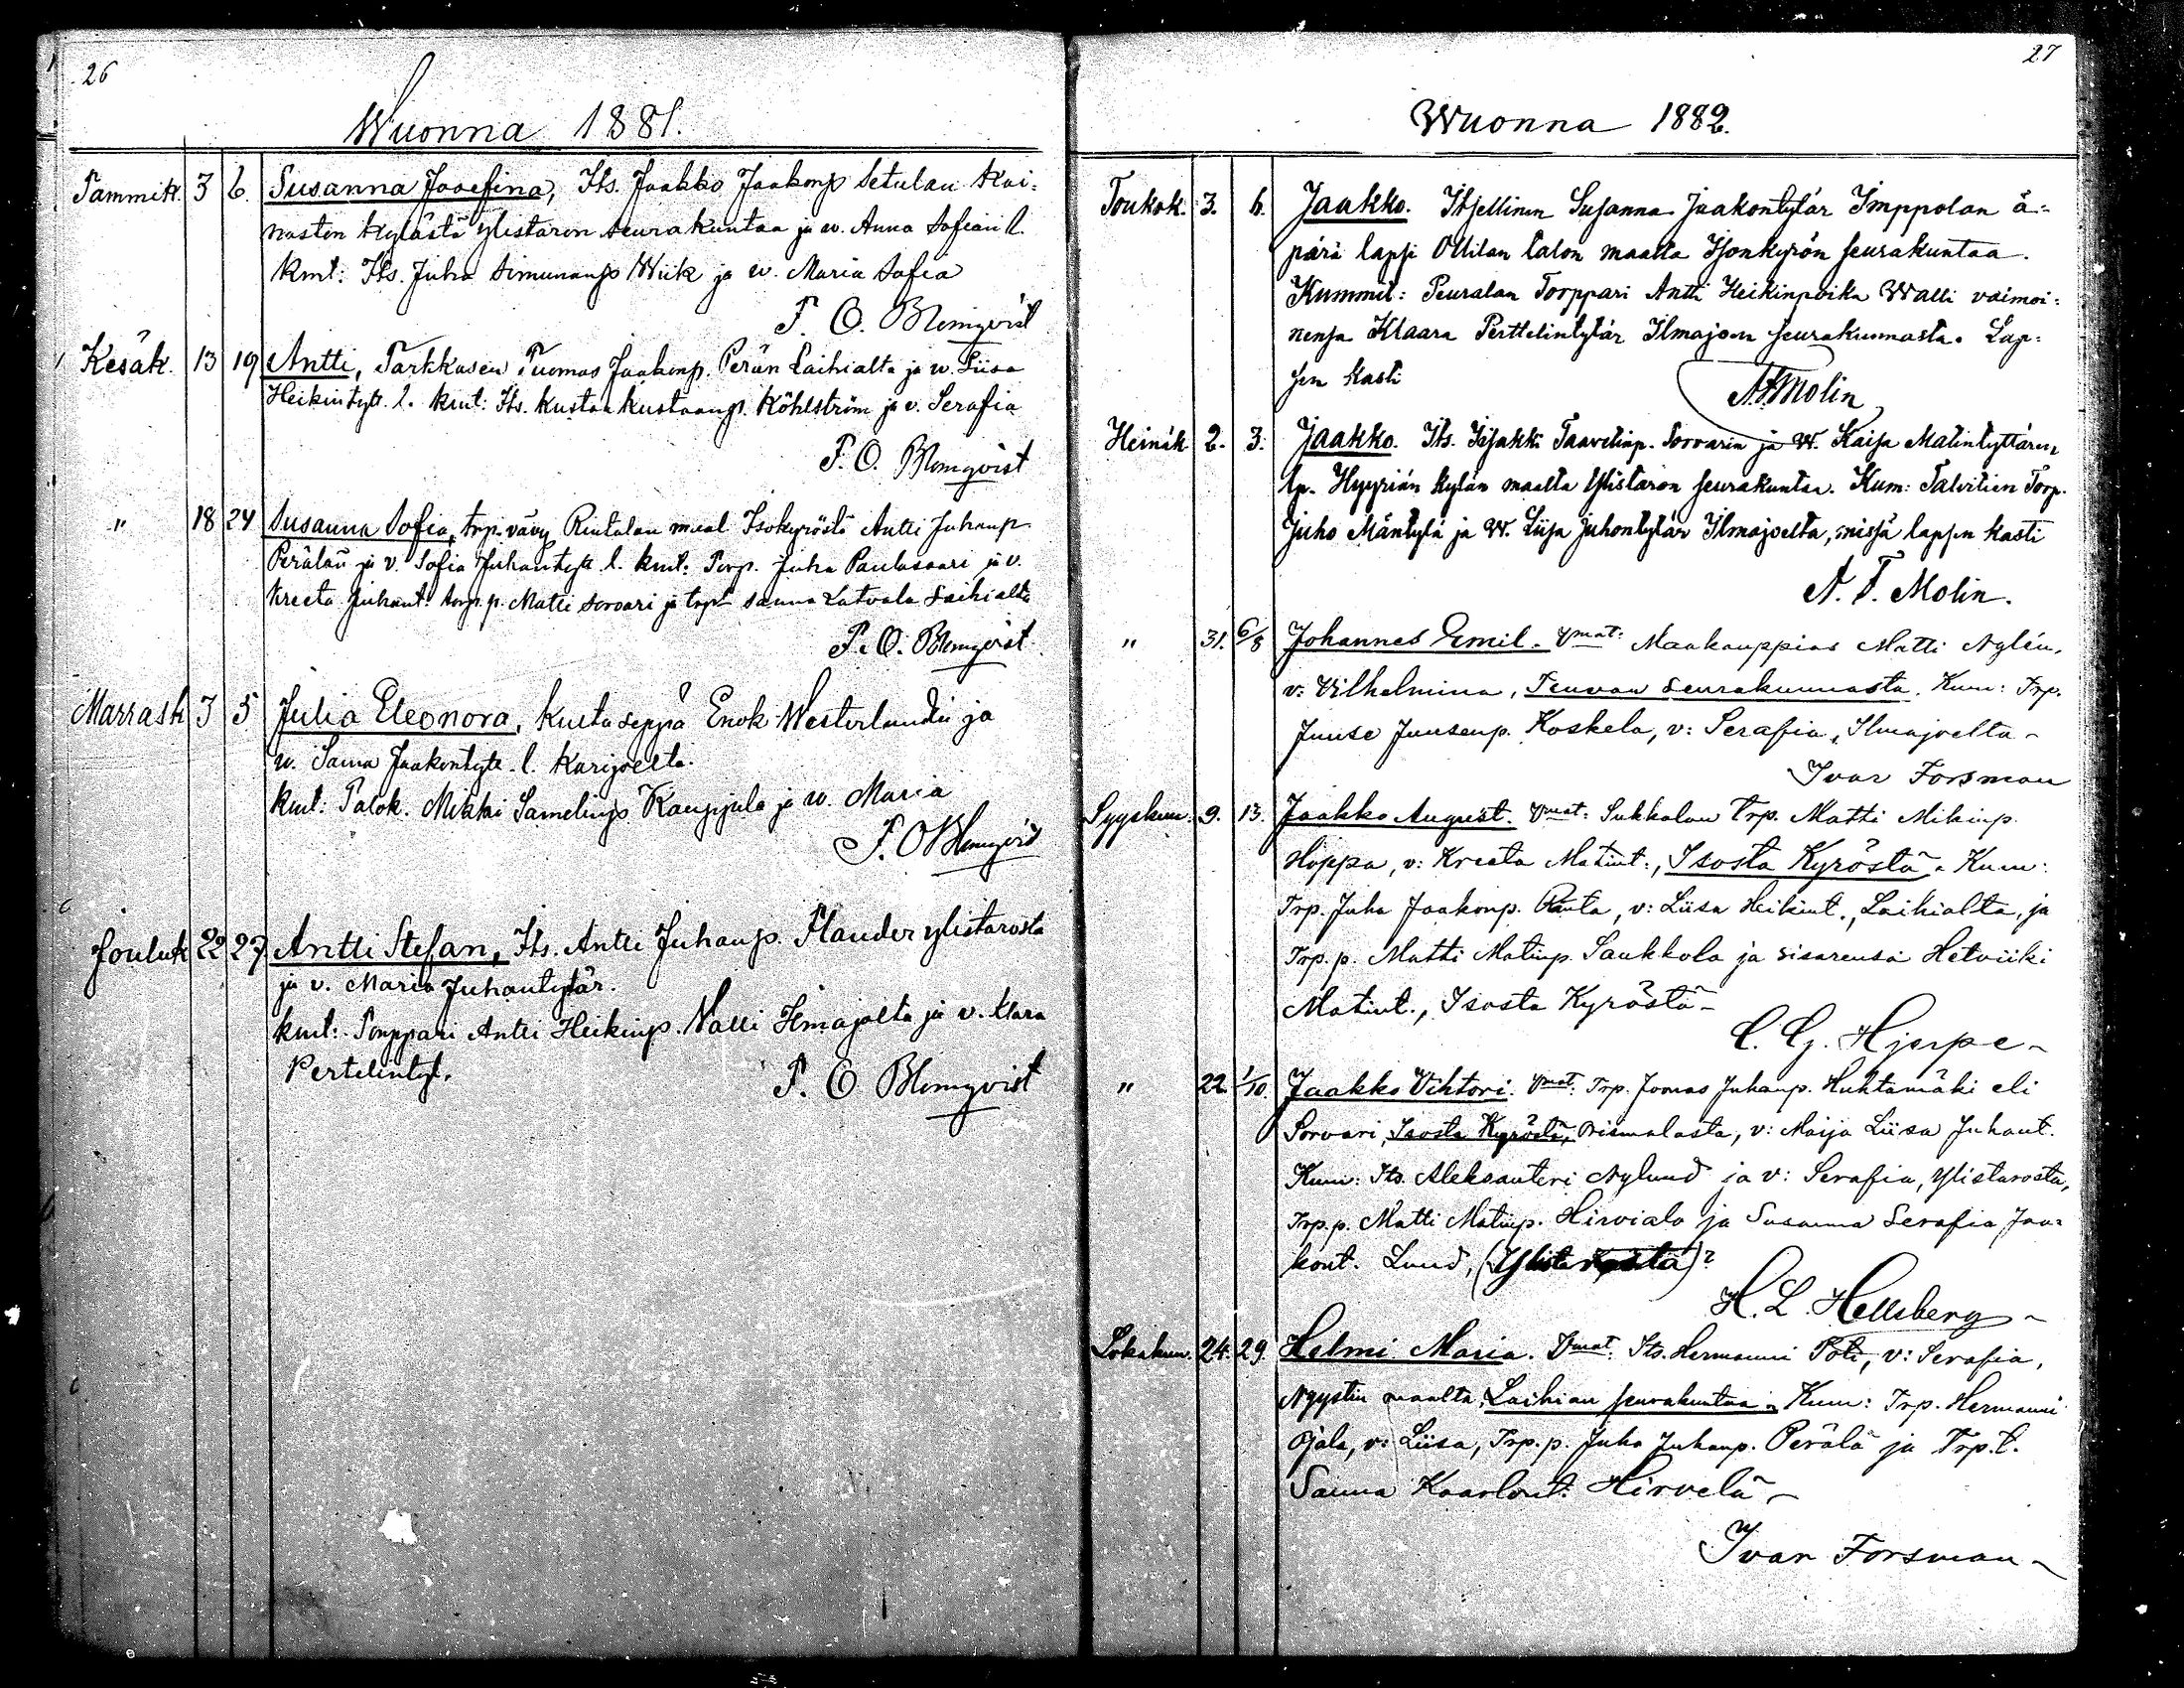 26
Wuonna 1881.
Tammik. 3 6. Susanna Josefina, Its. Jaakko Jaakonp Setulan Kai-
nasten kylästä Ylistaron seurakuntaa ja w. Anna Sofian l.
kmt: Its. Juha Simunanp Wiik ja w. Maria Sofia
P. O. Blomqvist
Kesäk. 13 19 Antti, Tarkkasen Tuomas Jaakonp. Perän Laihialta ja w. Liisa
Heikintytr. l. kmt: Its. Kustaa Kustaanp. Köhlström ja v. Serafia
P. O. Blomqvist
" 18 24 Susanna Sofia, trp. vävy Rintalan maal Isokyröstä Antti Juhanp
Perälän ja v. Sofia Juhantytr l. kmt: Torp. Juha Paulasaari ja v.
Kreeta Juhant. torp. p. Matti Sorvari ja trpt Sanna Latvala Laihialta
P. O. Blomqvist
Marrask 3 5 Julia Eleonora, Kultaseppä Enok Westerlundin ja
w. Sanna Jaakontytr. l. Karijoelta.
kmt: Talok. Mikki Samelinp. Kauppila ja w. Maria
P. O Blomqvist
Jouluk 22 27 Antti Stefan, Its. Antti Juhanp. Plander ylistarosta
ja v. Maria Juhantytär.
kmt: Torppari Antti Heikinp. Valli Ilmajolta ja v. Klara
Pertelintyt.
P. O Blomqvist
27
Wuonna 1882.
Toukok. 3. 6. Jaakko. Itsellinen Susanna Jaakontytär Imppolan ä-
pärä lapsi Ollilan talon maalta Isonkyrön seurakuntaa.
Kummit: Peuralan Torppari Antti Heikinpoika Walli vaimoi-
nensa Klaara Perttelintytär Ilmajoen seurakunnasta. Lap-
sen kasti
A. F. Molin
Heinäk 2. 3. Jaakko. Its. Iisakki Taavetinp. Sorvarin ja W. Kaisa Matintyttären
lp. Hyyriän kylän maalta Ylistaron seurakuntaa. Kum: Talvitien Torp.
Juho Mäntylä ja W. Liisa Juhontytär Ilmajoelta, missä lapsen kasti
A. F. Molin.
" 31. 6/8 Johannes Emil. Vmat: Maakauppias Matti Nylén,
v: Vilhelmina, Teuvan seurakunnasta. Kum: Trp.
Juuse Juusenp. Koskela, v: Serafia, Ilmajoelta -
Ivar Forsman
Syyskuu. 9. 13. Jaakko August. Vmat: Sukkalan Trp. Matti Mikinp.
Hoppa, v: Kreeta Matint:, Isosta Kyröstä. Kum:
Trp. Juha Jaakonp. Ranta, v: Liisa Heikint., Laihialta, ja
Trp. p. Matti Matinp. Saukkola ja sisarensa Hetviiki
Matint., Isosta Kyröstä -
C. G. Hjerpe -
" 22. 1/10. Jaakko Vihtori. Vmat: Trp. Joonas Juhanp. Huhtamäki eli
Sorvari, Isosta Kyröstä, Orismalasta, v: Maija Liisa Juhant.
Kum: Its. Aleksanteri Nylund ja v: Serafia, Ylistarosta,
Trp. p. Matti Matinp. Hirviala ja Susanna Serafia Jaa-
kont. Lund, (Ylistarosta)?
H. L. Hellsberg -
Lokakuu. 24. 29. Helmi Maria. Vmat: Its. Hermanni Poti, v: Serafia,
maalta, Laihian seurakuntaa. Kum: Trp. Hermanni
Ojala, v: Liisa, Trp. p. Juha Juhanp. Perälä ja Trp. t.
Sanna Kaarlont. Hirvelä -
Ivar Forsman -